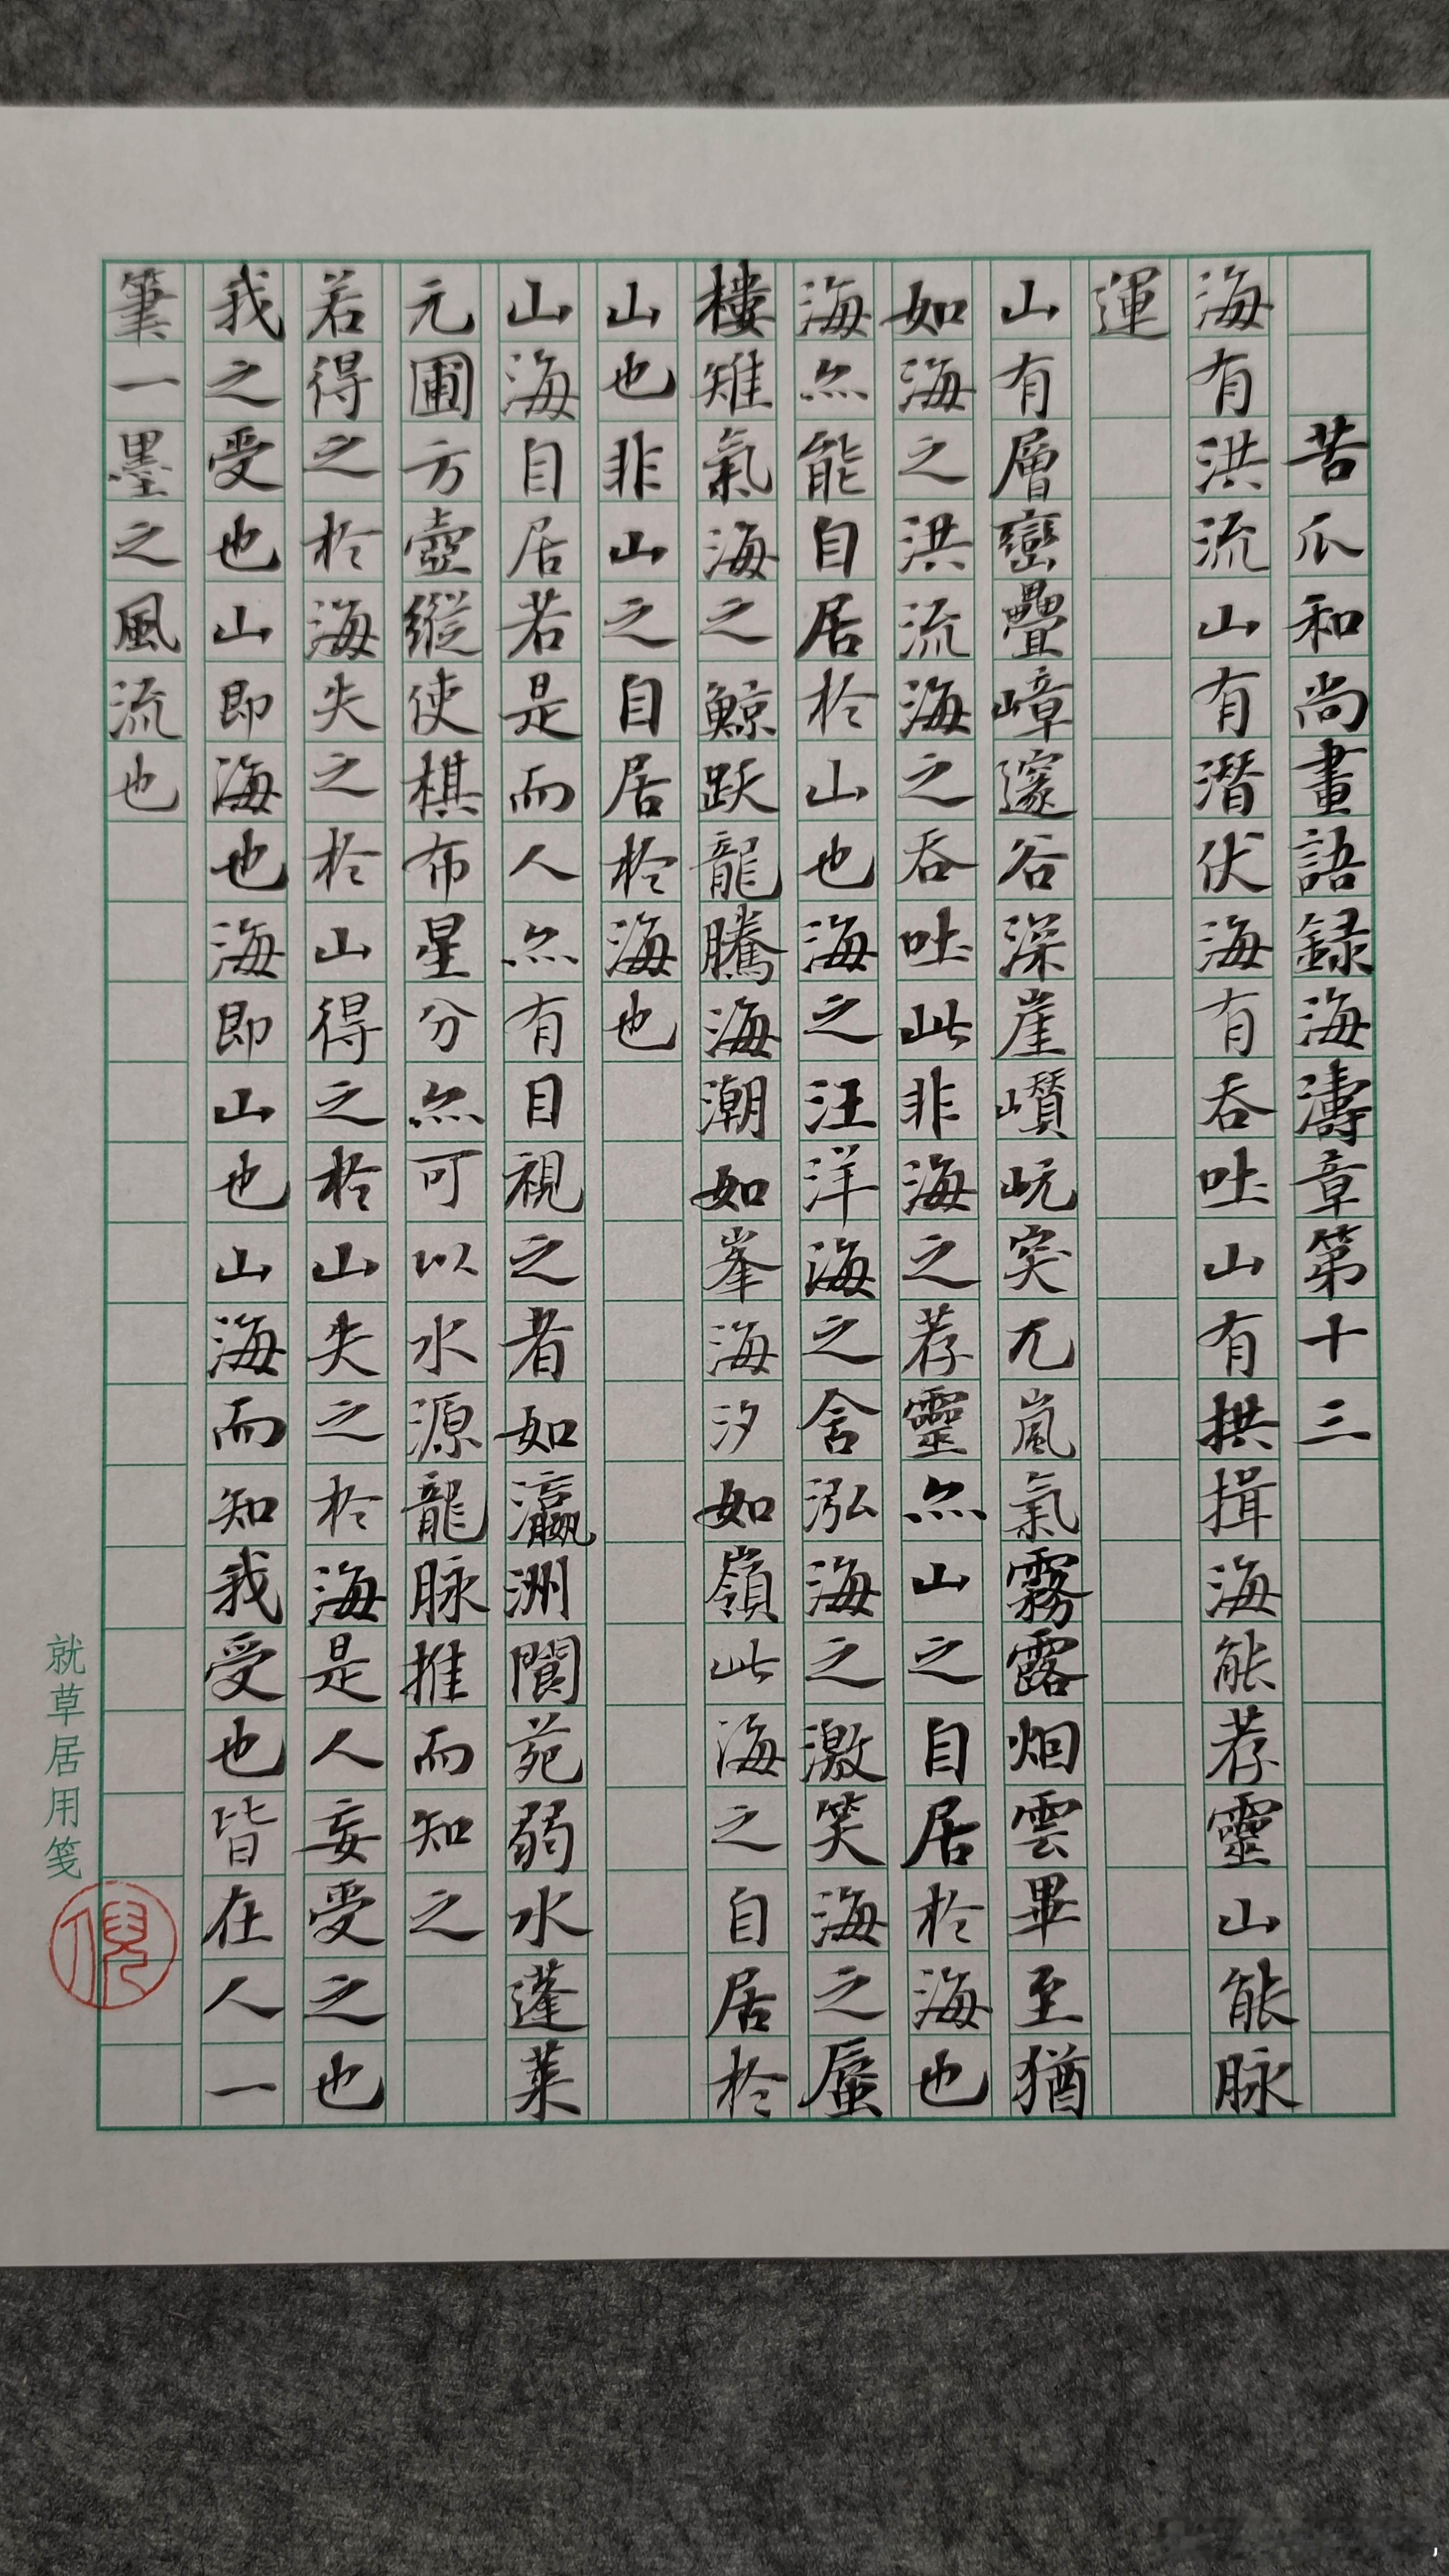 苦瓜和尚畫語録海濤章第十三
海有洪流山有潛伏海有吞吐山有拱揖海能荐靈山能脉
運
山有層巒疊嶂邃谷深崖巑岏突兀嵐氣霧露烟雲畢至猶
如海之洪流海之吞吐此非海之荐靈亦山之自居於海也
海亦能自居於山也海之汪洋海之含泓海之激笑海之蜃
樓雉氣海之鯨跃龍騰海潮如峯海汐如嶺此海之自居於
山也非山之自居於海也
山海自居若是而人亦有目視之者如瀛洲閬苑弱水蓬萊
元圃方壺縱使棋布星分亦可以水源龍脉推而知之
若得之於海失之於山得之於山失之於海是人妄受之也
我之受也山即海也海即山也山海而知我受也皆在人一
筆一墨之風流也
就草居用笺
倪